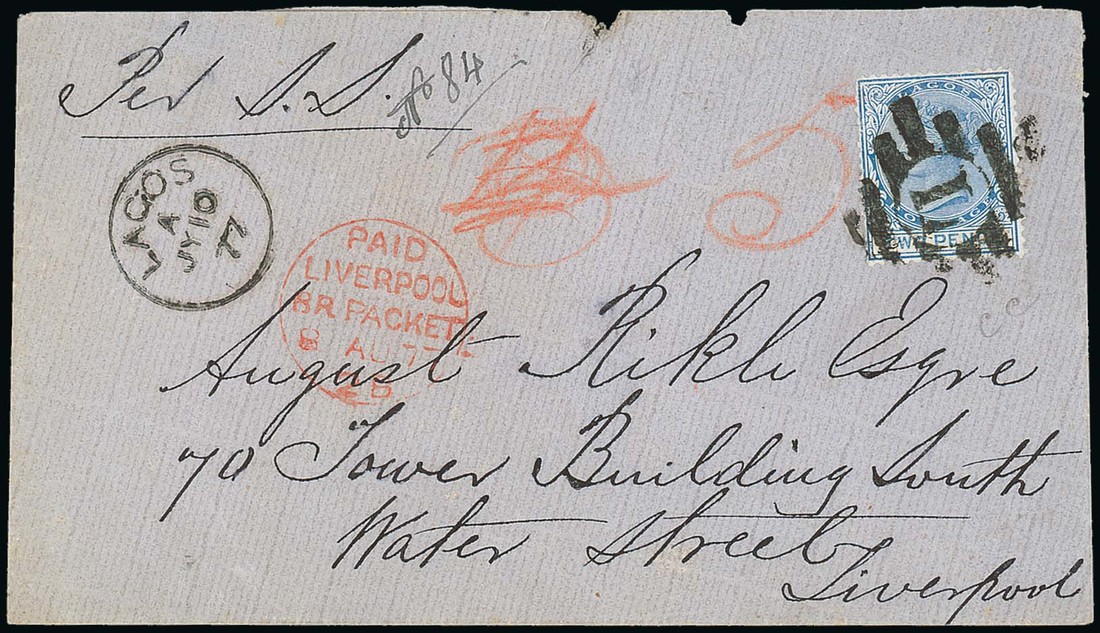 Per S.S.
No 84
LAGOS
A
JY 10
77
PAID
LIVERPOOL
BR PACKET
8 AU 77
5
LAGOS
POSTAGE
TWO PENCE
August Rikli Esqre
70 Tower Building South
Water Street
Liverpool